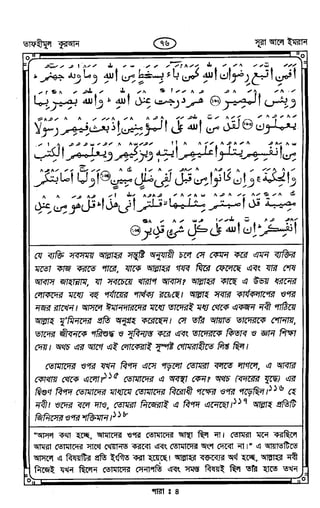 তাফহীমুল কুরআন
৭৬
সূরা আলে ইমরান
أَفَمَنِ اتَّبَعَ رِضْوَانَ اللَّهِ كَمَنْ بَاءَ بِسَخَطٍ مِّنَ اللَّهِ وَمَأْوٰىهُ جَهَنَّمُ
وَبِئْسَ الْمَصِيرُ ﴿١٦٢﴾ هُمْ دَرَجٰتٌ عِنْدَ اللَّهِ وَاللَّهُ بَصِيرٌ بِمَا
يَعْمَلُونَ ﴿١٦٣﴾ لَقَدْ مَنَّ اللَّهُ عَلَى الْمُؤْمِنِينَ إِذْ بَعَثَ فِيهِمْ رَسُولًا
مِّنْ أَنْفُسِهِمْ يَتْلُوا عَلَيْهِمْ اٰيٰتِهِ وَيُزَكِّيهِمْ وَيُعَلِّمُهُمُ الْكِتٰبَ
وَالْحِكْمَةَ وَإِنْ كَانُوا مِنْ قَبْلُ لَفِي ضَلٰلٍ مُّبِينٍ ﴿١٦٤﴾ أَوَلَمَّا أَصَابَتْكُمْ
مُّصِيبَةٌ قَدْ أَصَبْتُمْ مِّثْلَيْهَا قُلْتُمْ أَنّٰى هٰذَا قُلْ هُوَ مِنْ عِنْدِ
أَنْفُسِكُمْ إِنَّ اللَّهَ عَلٰى كُلِّ شَيْءٍ قَدِيرٌ ﴿١٦٥﴾
যে ব্যক্তি সবসময় আল্লাহর সন্তুষ্টি অনুযায়ী চলে সে কেমন করে এমন ব্যক্তির
মতো কাজ করতে পারে, যাকে আল্লাহর গযব ঘিরে ফেলেছে এবং যার শেষ
আবাস জাহান্নাম, যা সবচেয়ে খারাপ আবাস? আল্লাহর কাছে এ উভয় ধরনের
লোকদের মধ্যে বহু পর্যায়ের পার্থক্য রয়েছে। আল্লাহ সবার কার্যকলাপের ওপর
নজর রাখেন। আসলে ঈমানদারদের মধ্যে তাদেরই মধ্য থেকে একজন নবী পাঠিয়ে
আল্লাহ মু'মিনদের প্রতি অনুগ্রহ করেছেন। সে তাঁর আয়াত তাদেরকে শোনায়,
তাদের জীবনকে পরিশুদ্ধ ও সুবিন্যস্ত করে এবং তাদেরকে কিতাব ও জ্ঞান শিক্ষা
দেয়। অথচ এর আগে এই লোকেরাই সুস্পষ্ট গোমরাহীতে লিপ্ত ছিল।
তোমাদের ওপর যখন বিপদ এসে পড়লো তোমরা বলতে লাগলে, এ আবার
কোথায় থেকে এলো?১১৫ তোমাদের এ অবস্থা কেন? অথচ (বদরের যুদ্ধে) এর
দ্বিগুণ বিপদ তোমাদের মাধ্যমে তোমাদের বিরোধী পক্ষের ওপর পড়েছিল।১১৬ হে
নবী! ওদের বলে দাও, তোমরা নিজেরাই এ বিপদ এনেছো।১১৭ আল্লাহ প্রতিটি
জিনিসের ওপর শক্তিমান।১১৮
"আসল কথা হচ্ছে, আমাদের ওপর তোমাদের আস্থা ছিল না। তোমরা মনে করছিলে
আমরা তোমাদের সাথে খেয়ানত করবো এবং তোমাদের অংশ দেবো না।" এ আয়াতটিতে
আসলে এ বিষয়টির প্রতি ইংগিত করা হয়েছে। আল্লাহর বক্তব্যের অর্থ হচ্ছে, আল্লাহর নবী
নিজেই যখন ছিলেন তোমাদের সেনাপতি এবং সমস্ত বিষয়ই ছিল তাঁর হাতে তখন
পারা : ৪